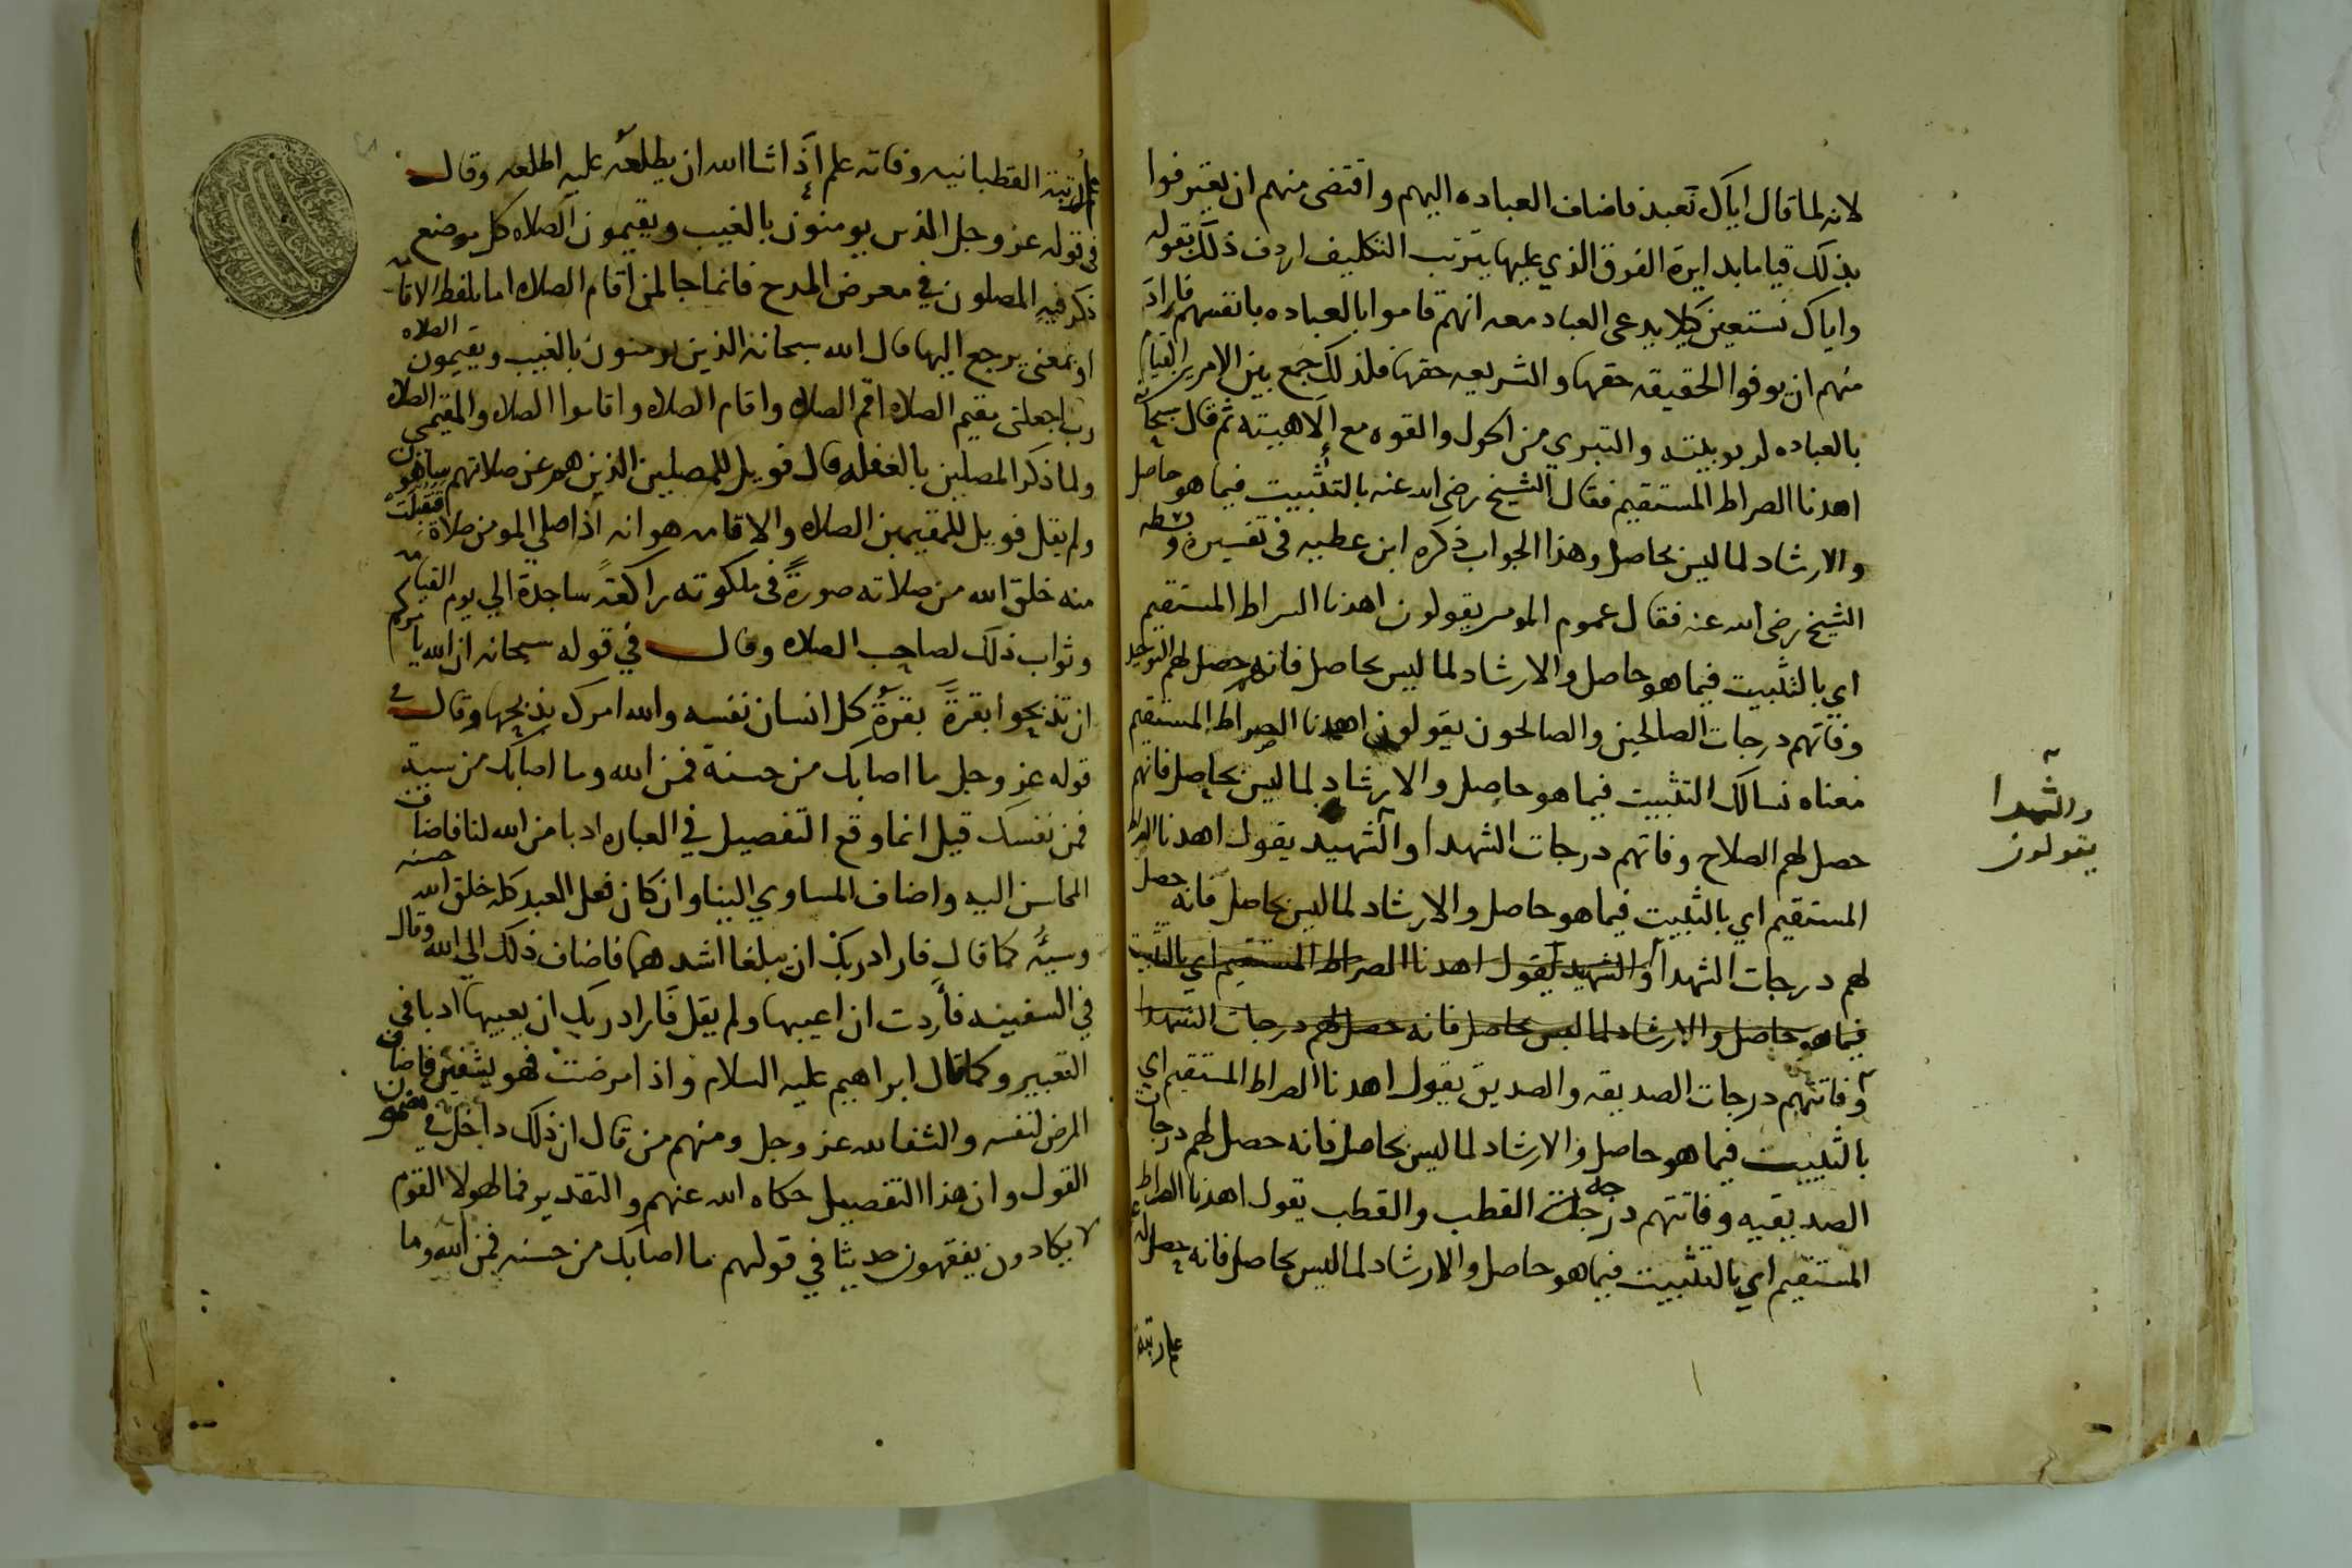 لانه لما قال اياك نعبد فاضاف العباده اليهم واقتضى منهم ان يعترفوا
بذلك قياما بدايرة الفرق الذي عليها يترتب التكليف اردف ذلك بقوله
واياك نستعين كيلا يدعى العباد معه انهم قاموا بالعباده بانفسهم فاراد
منهم ان يوفوا الحقيقه حقها والشريعه حقها فلذلك جمع بين الامرين القيام
بالعباده لربوبيته والتبري من الحول والقوه مع إلاهيته ثم قال سبحانه
اهدنا الصراط المستقيم فقال الشيخ رضي الله عنه بالتثبيت فيما هو حاصل
والارشاد لما ليس بحاصل وهذا الجواب ذكره ابن عطيه في تفسيره وبسطه
الشيخ رضي الله عنه فقال عموم المومنين يقولون اهدنا الصراط المستقيم
اي بالتثبيت فيما هو حاصل والارشاد لما ليس بحاصل فانه حصل لهم التوحيد
وفاتهم درجات الصالحين والصالحون يقولون اهدنا الصراط المستقيم
معناه نسالك التثبيت فيما هو حاصل والارشاد لما ليس بحاصل فانهم
حصل لهم الصلاح وفاتهم درجات الشهدا والشهيد يقول اهدنا الصراط
والشهدا
يقولون
المستقيم اي بالتثبيت فيما هو حاصل والارشاد لما ليس بحاصل فانه حصل
لهم درجات الشهدا والشهيد يقول اهدنا الصراط المستقيم اي بالتثبيت
فيما هو حاصل والارشاد لما ليس بحاصل فانه حصل لهم درجات الشهدا
وفاتتهم درجات الصديقه والصديق يقول اهدنا الصراط المستقيم اي
بالتثبيت فيما هو حاصل والارشاد لما ليس بحاصل فانه حصل لهم درجات
الصديقيه وفاتتهم درجة القطب والقطب يقول اهدنا الصراط
المستقيم اي بالتثبيت فيما هو حاصل والارشاد لما ليس بحاصل فانه حصل له
علم رتبة
علم رتبة القطبانيه وفاته علم اذا شا الله ان يطلعه عليه اطلعه وقال
في قوله عز وجل الذين يومنون بالغيب ويقيمون الصلاه كل موضع
ذكر فيه المصلون في معرض المدح فانما جا لمن اقام الصلاه اما بلفظ الاقامه
او بمعنى يرجع اليها قال الله سبحانه الذين يومنون بالغيب ويقيمون الصلاه
رب اجعلني مقيم الصلاه اقم الصلاه واقام الصلاه واقاموا الصلاه والمقيمي الصلاه
ولما ذكر المصلين بالغفله قال فويل للمصلين الذين هم عن صلاتهم ساهون
ولم يقل فويل للمقيمين الصلاه والاقامه هو انه اذا صلى المومن صلاة فتقبلت
منه خلق الله من صلاته صورةً في ملكوته راكعةً ساجدة الي يوم القيامه
وثواب ذلك لصاحب الصلاه وقال في قوله سبحانه ان الله يامركم
ان تذبحوا بقرةً بقرةُ كل انسان نفسه والله امرك بذبحها وقال في
قوله عز وجل ما اصابك من حسنة فمن الله وما اصابك من سيية
فمن نفسك قيل انما وقع التفصيل في العباره ادبا من الله لنا فاضاف
المحاسن اليه واضاف المساوي الينا وان كان فعل العبد كله خلق الله حسنه
وسيئه كما قال فاراد ربك ان يبلغا اشدهما فاضاف ذلك الى الله وقال
في السفينه فأردت ان اعيبها ولم يقل فاراد ربك ان يعيبها ادبا في
التعبير وكما قال ابراهيم عليه السلام واذا مرضت فهو يشفين فاضاف
المرض لنفسه والشفا لله عز وجل ومنهم من قال ان ذلك داخل في مضمون
القول وان هذا التفصيل حكاه الله عنهم والتقدير فمال هولا القوم
لا يكادون يفقهون حديثا في قولهم ما اصابك من حسنه فمن الله وما